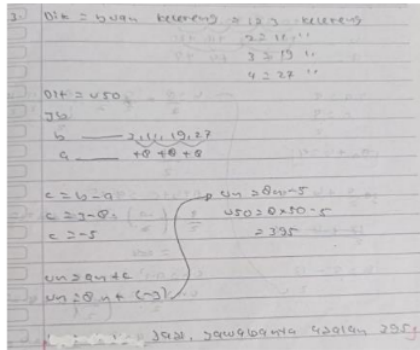 3. Dik = buah kelereng = 1 = 3 kelereng
2 = 11 "
3 = 19 "
4 = 27 "
Dit = U50
Jb
b 3, 11, 19, 27
a +8 +8 +8
c = b - a
c = 3 - 8
c = -5
Un = an + c
Un = 8n + (-5)
Un = 8n - 5
U50 = 8 x 50 - 5
= 395
Jadi, jawabannya adalah 395